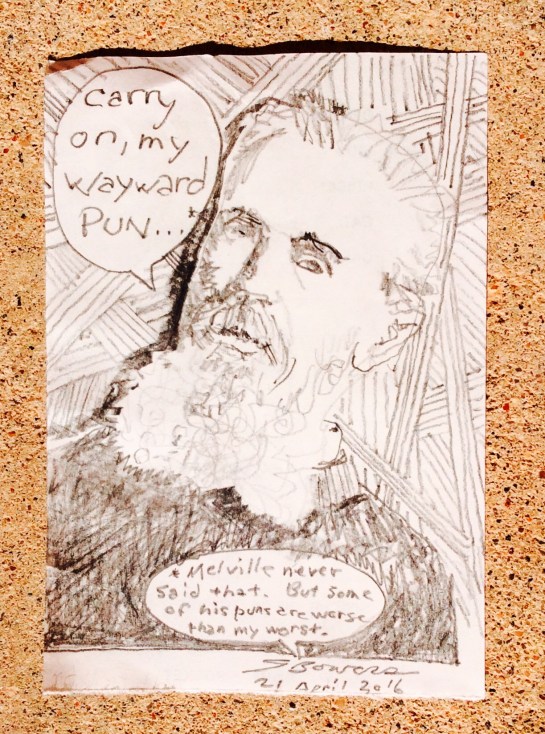 Carry
on, my
wayward
PUN...*
* Melville never
said that. But some
of his puns are worse
than my worst.
SBowers
21 April 2016